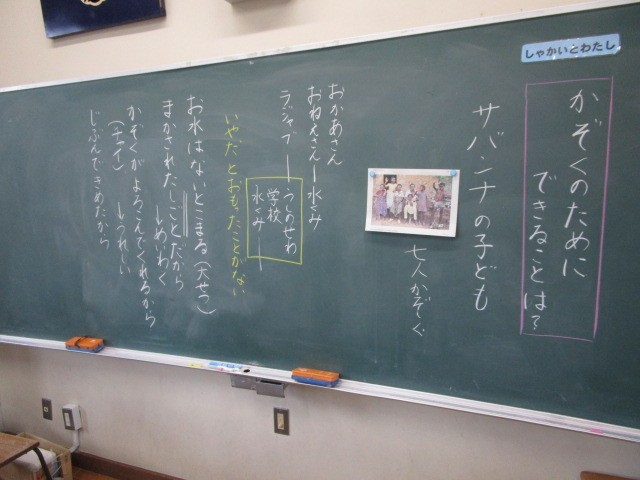 しゃかいとわたし
かぞくのために
できることは?
サバンナの子ども
七人かぞく
おかあさん
おねえさん―水くみ
ラジャブ―うしのせわ
学校
水くみ―
いやだとおもったことがない
お水はないとこまる(大せつ)
まかされたしごとだから
↳めいわく
かぞくがよろこんでくれるから
(チャイ) ↳うれしい
じぶんできめたから